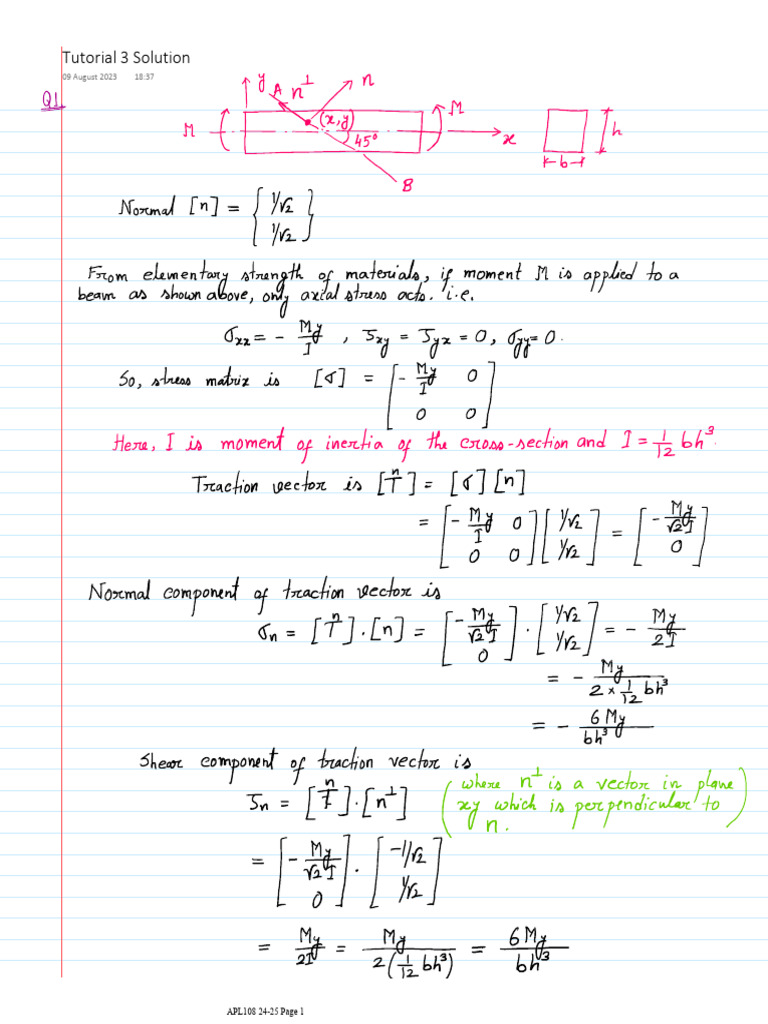 Tutorial 3 Solution
09 August 2023 18:37
Q1
y A n⊥ n
M (x,y) 45° M x h
b
B
Normal [n] = { 1/√2
1/√2 }
From elementary strength of materials, if moment M is applied to a
beam as shown above, only axial stress acts. i.e.
σxx = - My/I , τxy = τyx = 0, σyy = 0.
So, stress matrix is [σ] = [ - My/I 0
0 0 ]
Here, I is moment of inertia of the cross-section and I = 1/12 bh³.
Traction vector is [Tⁿ] = [σ][n]
= [ - My/I 0 ; 0 0 ] [ 1/√2 ; 1/√2 ] = [ - My/√2I ; 0 ]
Normal component of traction vector is
σn = [Tⁿ] . [n] = [ - My/√2I ; 0 ] . [ 1/√2 ; 1/√2 ] = - My/2I
= - My/(2 × 1/12 bh³)
= - 6My/bh³
Shear component of traction vector is
τn = [Tⁿ] . [n⊥] (where n⊥ is a vector in plane
xy which is perpendicular to
n.)
= [ - My/√2I ; 0 ] . [ -1/√2 ; 1/√2 ]
= My/2I = My/(2(1/12 bh³)) = 6My/bh³
APL108 24-25 Page 1